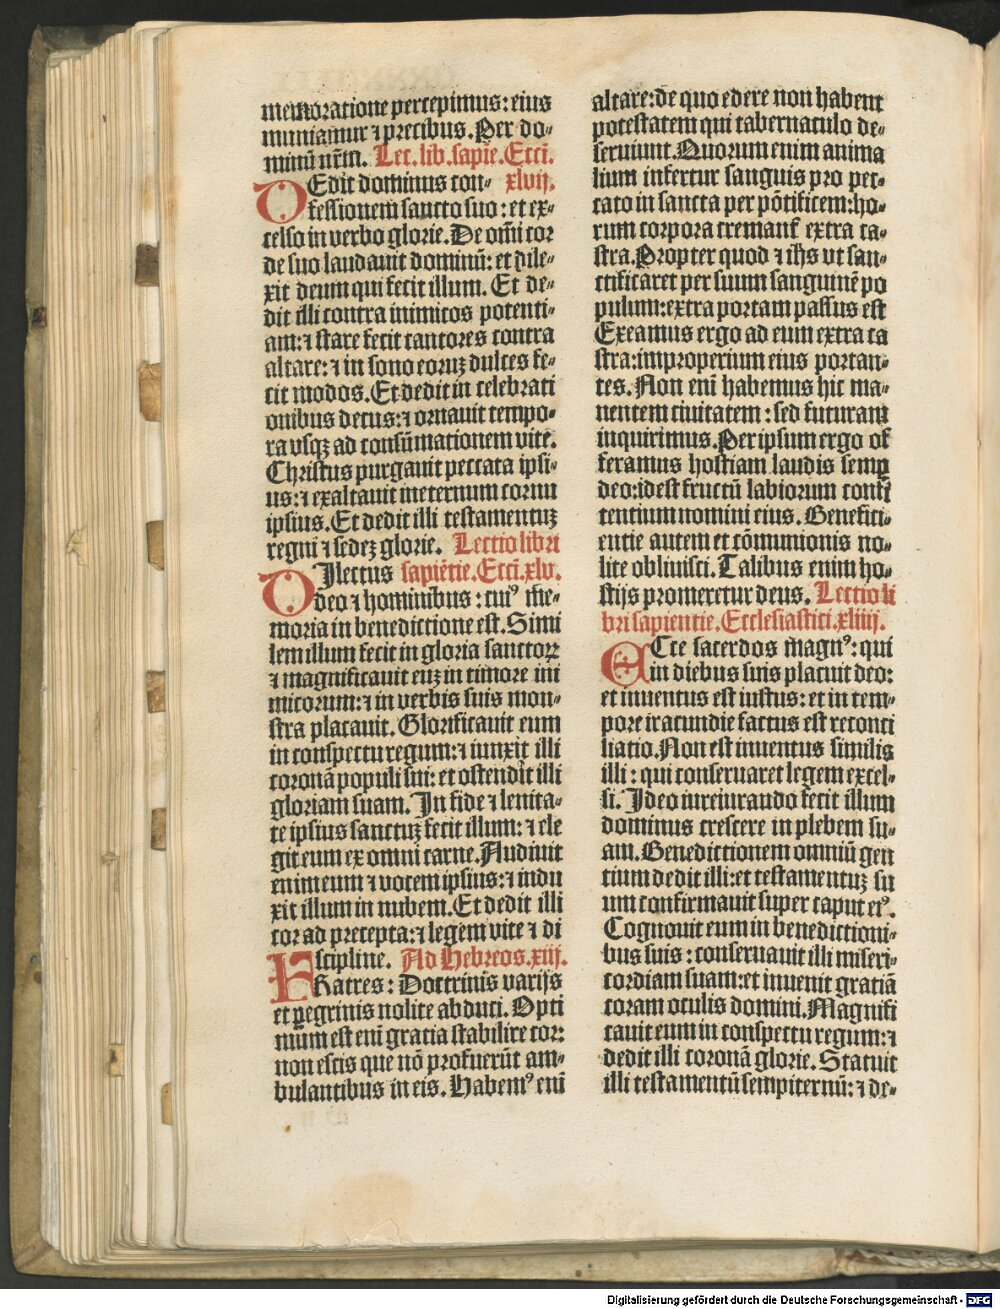 memoratione percepimus: eius
muniamur ⁊ precibus. Per do-
minū nr̄m. Lec. lib. sapiē. Ecci.
DEdit dominus con- xlvij.
fessionem sancto suo: et ex-
celso in verbo glorie. De om̄i cor
de suo laudauit dominū: et dile-
xit deum qui fecit illum. Et de-
dit illi contra inimicos potenti-
am: ⁊ stare fecit cantores contra
altare: ⁊ in sono eoruꝫ dulces fe-
cit modos. Et dedit in celebrati
onibus decus: ⁊ ornauit tempo-
ra vsqꝫ ad consūmationem vite.
Christus purgauit peccata ipsi-
us: ⁊ exaltauit ineternum cornu
ipsius. Et dedit illi testamentuꝫ
regni ⁊ sedeꝫ glorie. Lectio libri
DIlectus sapiētie. Ecci. xlv.
deo ⁊ hominibus: cuiꝰ me-
moria in benedictione est. Simi
lem illum fecit in gloria sanctoꝝ
⁊ magnificauit euꝫ in timore ini
micorum: ⁊ in verbis suis mon-
stra placauit. Glorificauit eum
in conspectu regum: ⁊ iunxit illi
coronā populi sui: et ostendit illi
gloriam suam. In fide ⁊ lenita-
te ipsius sanctuꝫ fecit illum: ⁊ ele
git eum ex omni carne. Audiuit
enim eum ⁊ vocem ipsius: ⁊ indu
xit illum in nubem. Et dedit illi
cor ad precepta: ⁊ legem vite ⁊ di
scipline. Ad Hebreos. xiij.
FRatres: Doctrinis varijs
et ꝑegrinis nolite abduci. Opti
mum est eni gratia stabilire cor:
non escis que nō profuerūt am-
bulantibus in eis. Habemꝰ eni
altare: de quo edere non habent
potestatem qui tabernaculo de-
seruiunt. Quorum enim anima
lium infertur sanguis pro pec-
cato in sancta per pōtificem: ho-
rum corpora cremant᷑ extra ca-
stra. Propter quod ⁊ ihs vt san-
ctificaret per suum sanguinē po
pulum: extra portam passus est
Exeamus ergo ad eum extra ca
stra: improperium eius portan-
tes. Non eni habemus hic ma-
nentem ciuitatem: sed futuram
inquirimus. Per ipsum ergo of
feramus hostiam laudis semꝑ
deo: id est fructū labiorum confi
tentium nomini eius. Benefici-
entie autem et cōmunionis no-
lite obliuisci. Talibus enim ho-
stijs promeretur deus. Lectio li
bri sapientie. Ecclesiastici. xliiij.
ECce sacerdos magnꝰ: qui
in diebus suis placuit deo:
et inuentus est iustus: et in tem-
pore iracundie factus est reconci
liatio. Non est inuentus similis
illi: qui conseruaret legem excel-
si. Ideo iureiurando fecit illum
dominus crescere in plebem su-
am. Benedictionem omniū gen
tium dedit illi: et testamentuꝫ su
um confirmauit super caput eiꝰ.
Cognouit eum in benedictioni-
bus suis: conseruauit illi miseri-
cordiam suam: et inuenit gratiā
coram oculis domini. Magnifi
cauit eum in conspectu regum: ⁊
dedit illi coronā glorie. Statuit
illi testamentū sempiternū: ⁊ de-
Digitalisierung gefördert durch die Deutsche Forschungsgemeinschaft - DFG